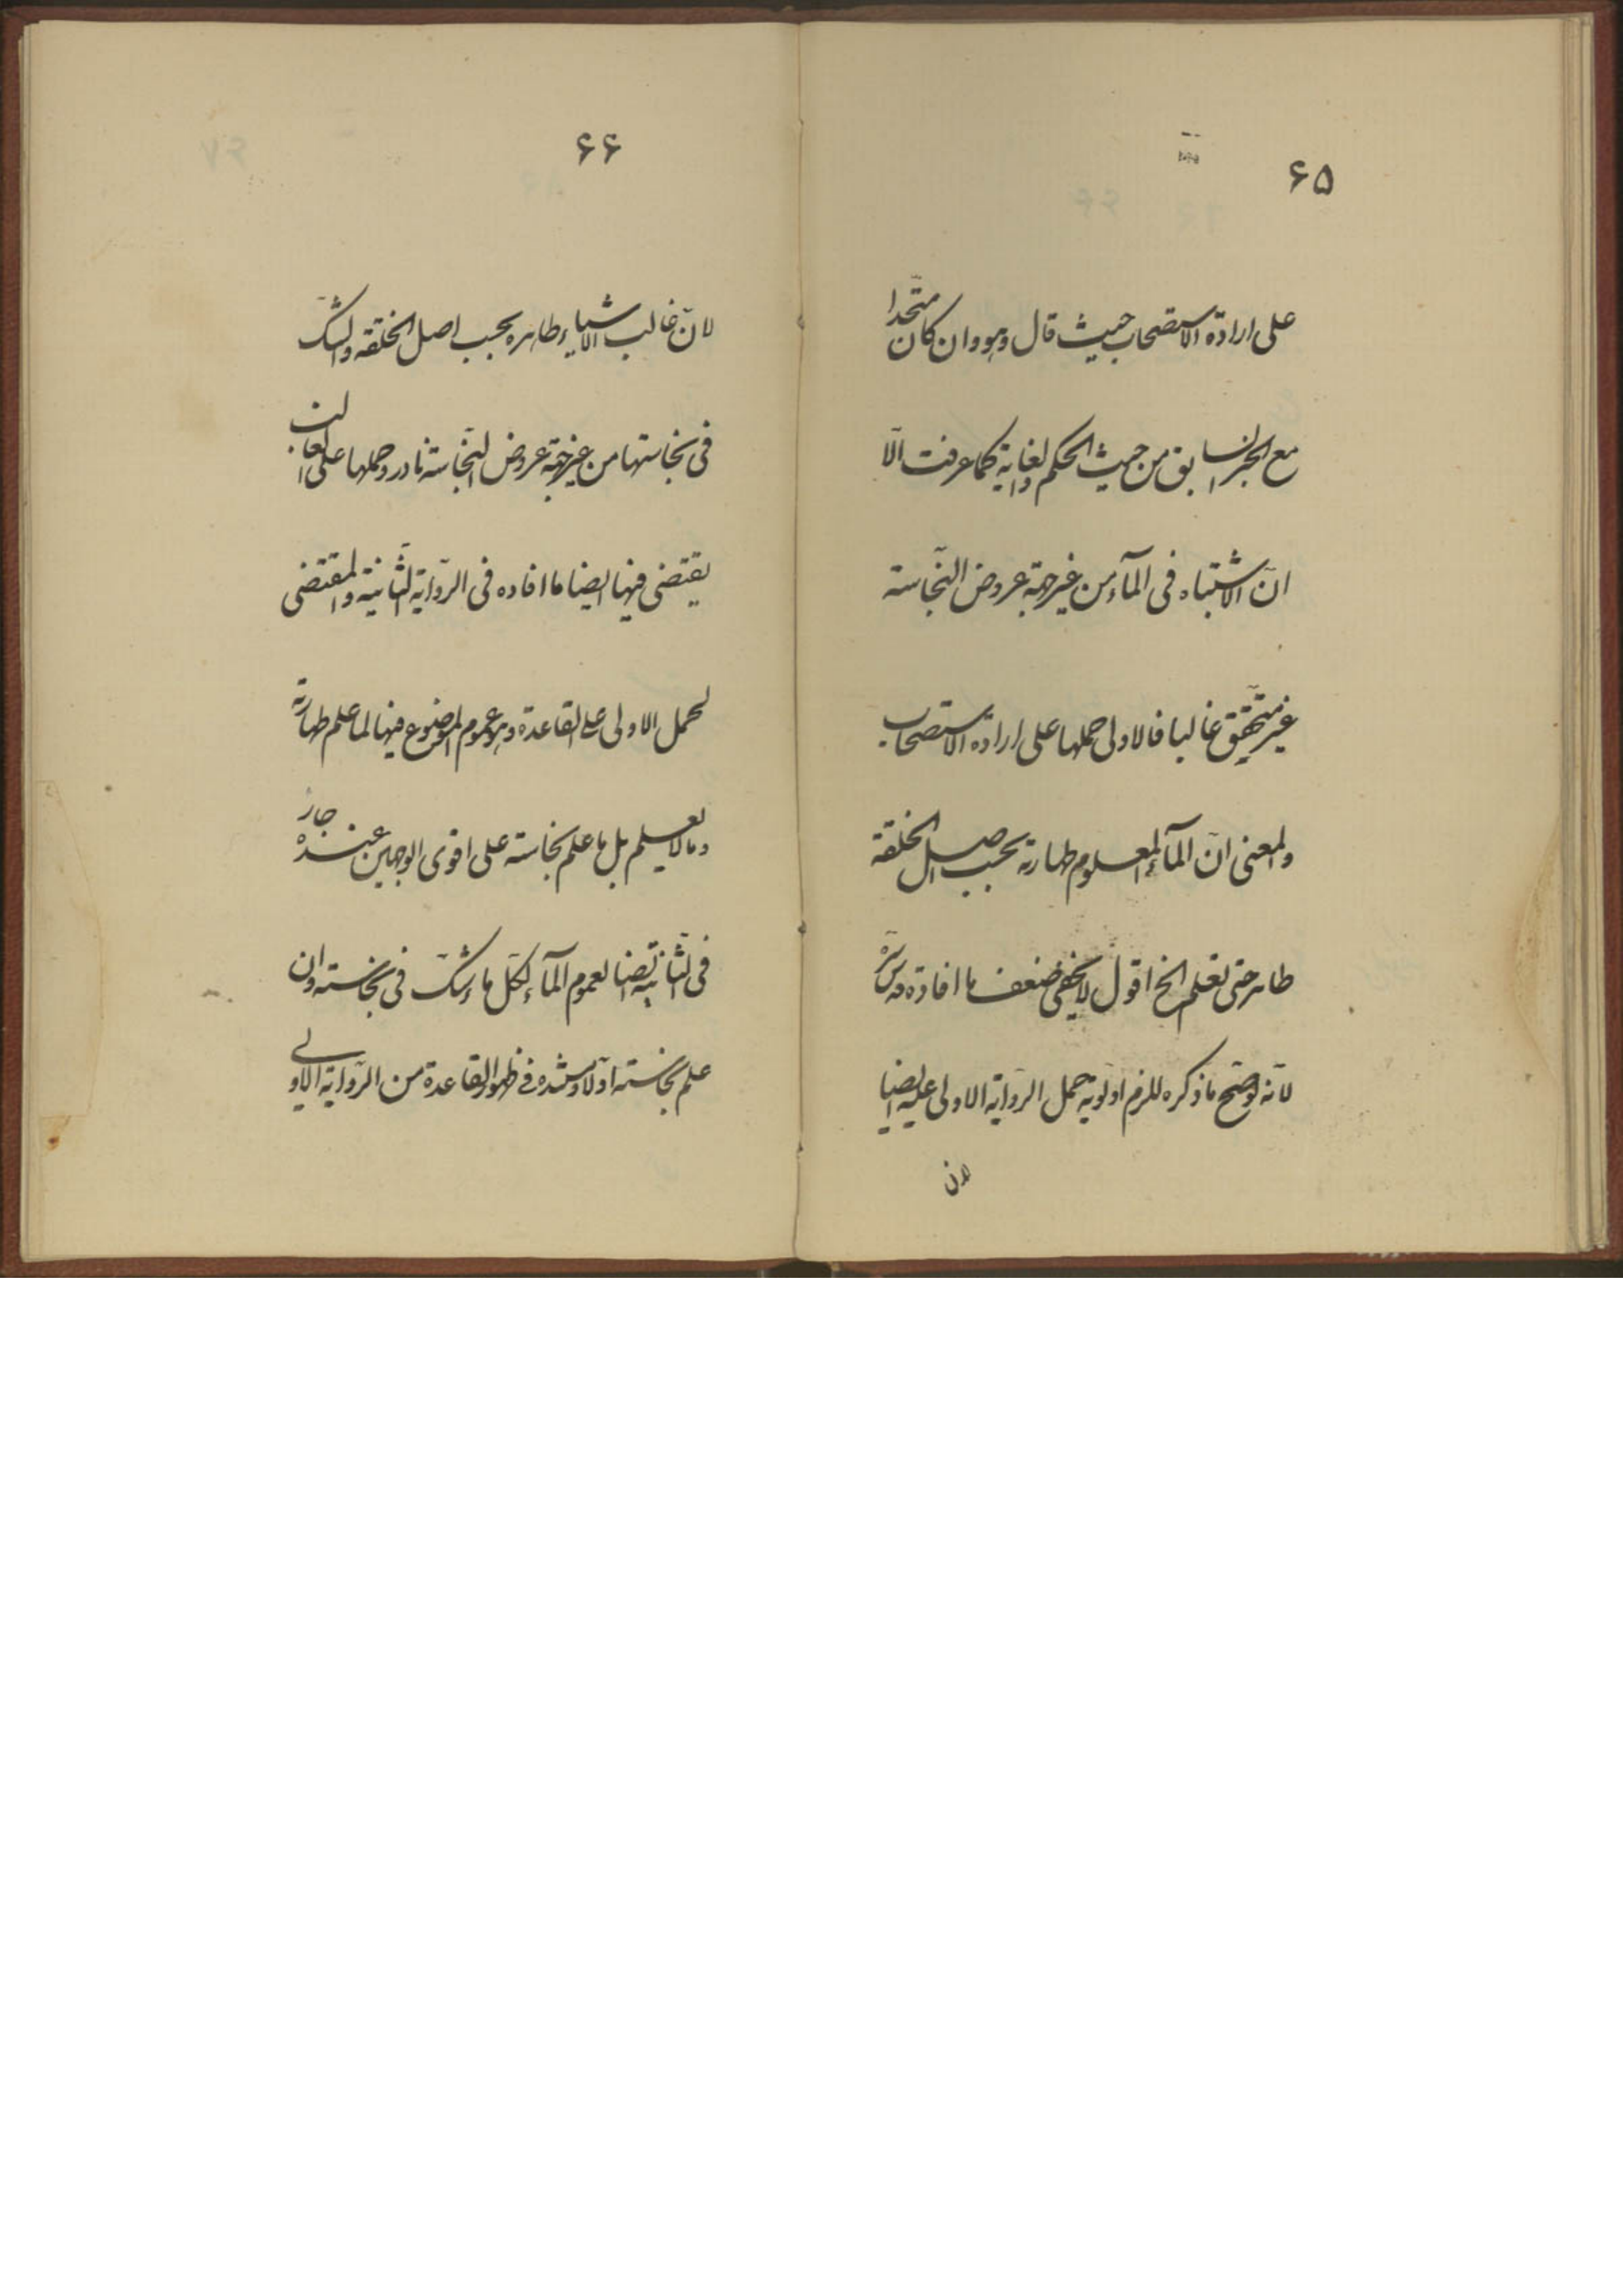 ۶۵
على ارادة الاستصحاب حيث قال وهو وان كان متّحدا
مع الخبر السابق من حيث الحكم والغاية كما عرفت الّا
انّ الاشتباه فى المآء من غير جهة عروض النّجاسة
غير متحقّق غالبا فالاولى حملها على ارادة الاستصحاب
والمعنى انّ المآء المعلوم طهارته بحسب اصل الخلقة
طاهر حتى تعلم الخ اقول لا يخفى ضعف ما افاده قدس سّره
لانّه لو صحّ ما ذكره للزم اولويّة حمل الرّواية الاولى عليه ايضا
لان
۶۶
لانّ غالب الاشياء طاهرة بحسب اصل الخلقة والشكّ
فى نجاستها من غير جهة عروض النّجاسة نادر وحملها على الغالب
يقتضى فيها ايضا ما افاده فى الرّواية الثّانية والمقتضى
لحمل الاولى على القاعدة وهو عموم الموضوع فيها لما علم طهارته
وما لا يعلم بل ما علم نجاسته على اقوى الوجهين عنده جار
فى الثّانية ايضا لعموم المآء لكلّ ما شكّ فى نجاسته وان
علم نجاسته اوّلا و فى ظهور القاعدة من الرّواية الاولى